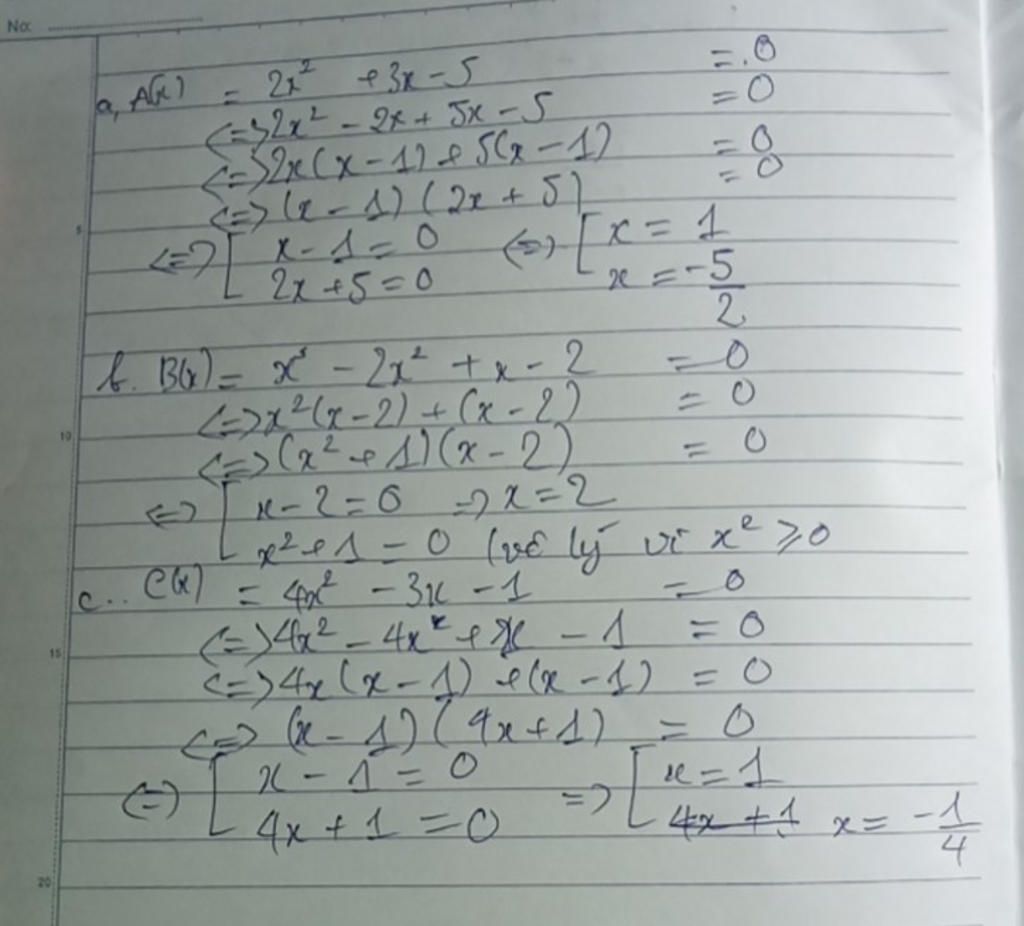 No:
a, A(x) = 2x² + 3x - 5 = 0
<=> 2x² - 2x + 5x - 5 = 0
<=> 2x(x - 1) + 5(x - 1) = 0
<=> (x - 1)(2x + 5) = 0
<=> [ x - 1 = 0 <=> [ x = 1
2x + 5 = 0 x = -5/2
5
b. B(x) = x³ - 2x² + x - 2 = 0
<=> x²(x - 2) + (x - 2) = 0
10
<=> (x² + 1)(x - 2) = 0
<=> [ x - 2 = 0 => x = 2
x² + 1 = 0 (vô lý vì x² ≥ 0
c.. C(x) = 4x² - 3x - 1 = 0
<=> 4x² - 4x + x - 1 = 0
15
<=> 4x(x - 1) + (x - 1) = 0
<=> (x - 1)(4x + 1) = 0
<=> [ x - 1 = 0 => [ x = 1
4x + 1 = 0 4x + 1 x = -1/4
20